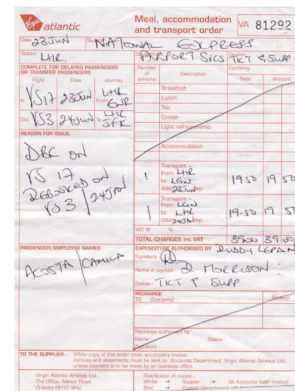 Virgin atlantic
Meal, accommodation
and transport order
VA 81292
Date 23JUN
To NATIONAL EXPRESS
Station LHR
AIRPORT SVCS TKT & SUPP
COMPLETE FOR DELAYED PASSENGERS
OR TRANSFER PASSENGERS
Flight Date Journey
In VS17 23JUN LHR
EWR
Out VS3 24JUN LHR
JFK
REASON FOR ISSUE:
DBC ON
VS 17
REBOOKED ON
VS 3 / 24JUN
Number of persons Description Currency
Rate Amount
Breakfast
Lunch
Tea
Dinner
Light refreshments
Accommodation
1 Transport –
from LHR
to LGW
date 23JUN
19.50 19.50
1 Transport –
from LGW
to LHR
19.50 19.5
VAT # %
TOTAL CHARGES inc VAT 39.00 39.00
PASSENGER/EMPLOYEE NAMES
ACOSTA/CAMILA
EXPENDITURE AUTHORISED BY
Signature
Name in capitals J MORRISON
Status TKT & SUPP
RECHARGE
TO (Company) Amount
Recharge authorised by –
Name Status –
Signature
TO THE SUPPLIER - White copy of this order must accompany invoice.
Invoices and statements must be sent to: Accounts Department, Virgin Atlantic Airways Ltd.
unless payment is to be made by an overseas office
Virgin Atlantic Airways Ltd
The Office, Manor Royal
Crawley RH10 9NU
Distribution of copies -
White → Supplier → VA Accounts (with invoice)
Blue →